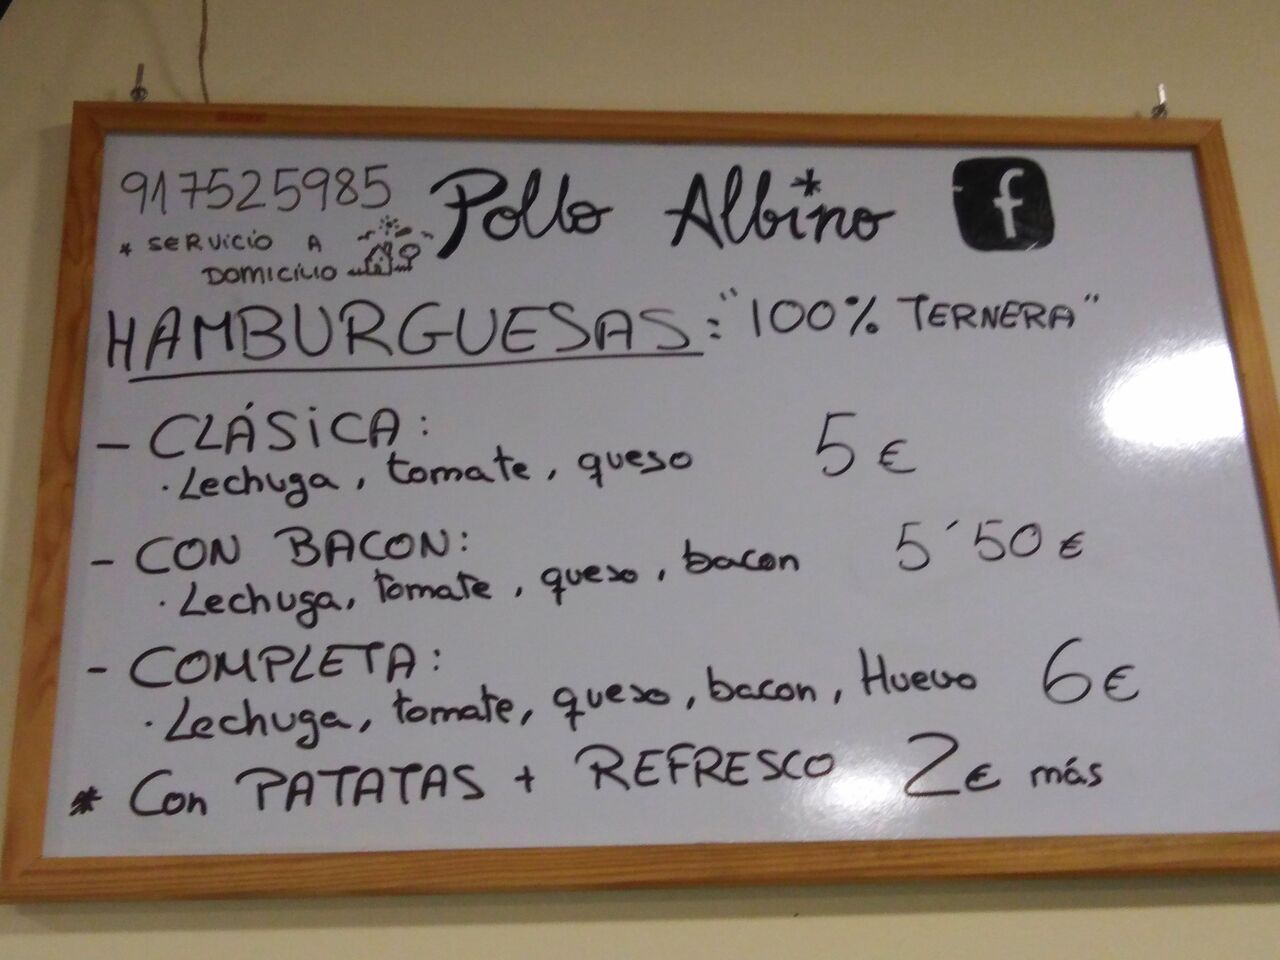 917525985 Pollo Albino f
* SERVICIO A
DOMICILIO
HAMBURGUESAS: "100% TERNERA"
- CLÁSICA:
· Lechuga, tomate, queso 5€
- CON BACON:
· Lechuga, tomate, queso, bacon 5´50€
- COMPLETA:
· Lechuga, tomate, queso, bacon, Huevo 6€
* Con PATATAS + REFRESCO 2€ más